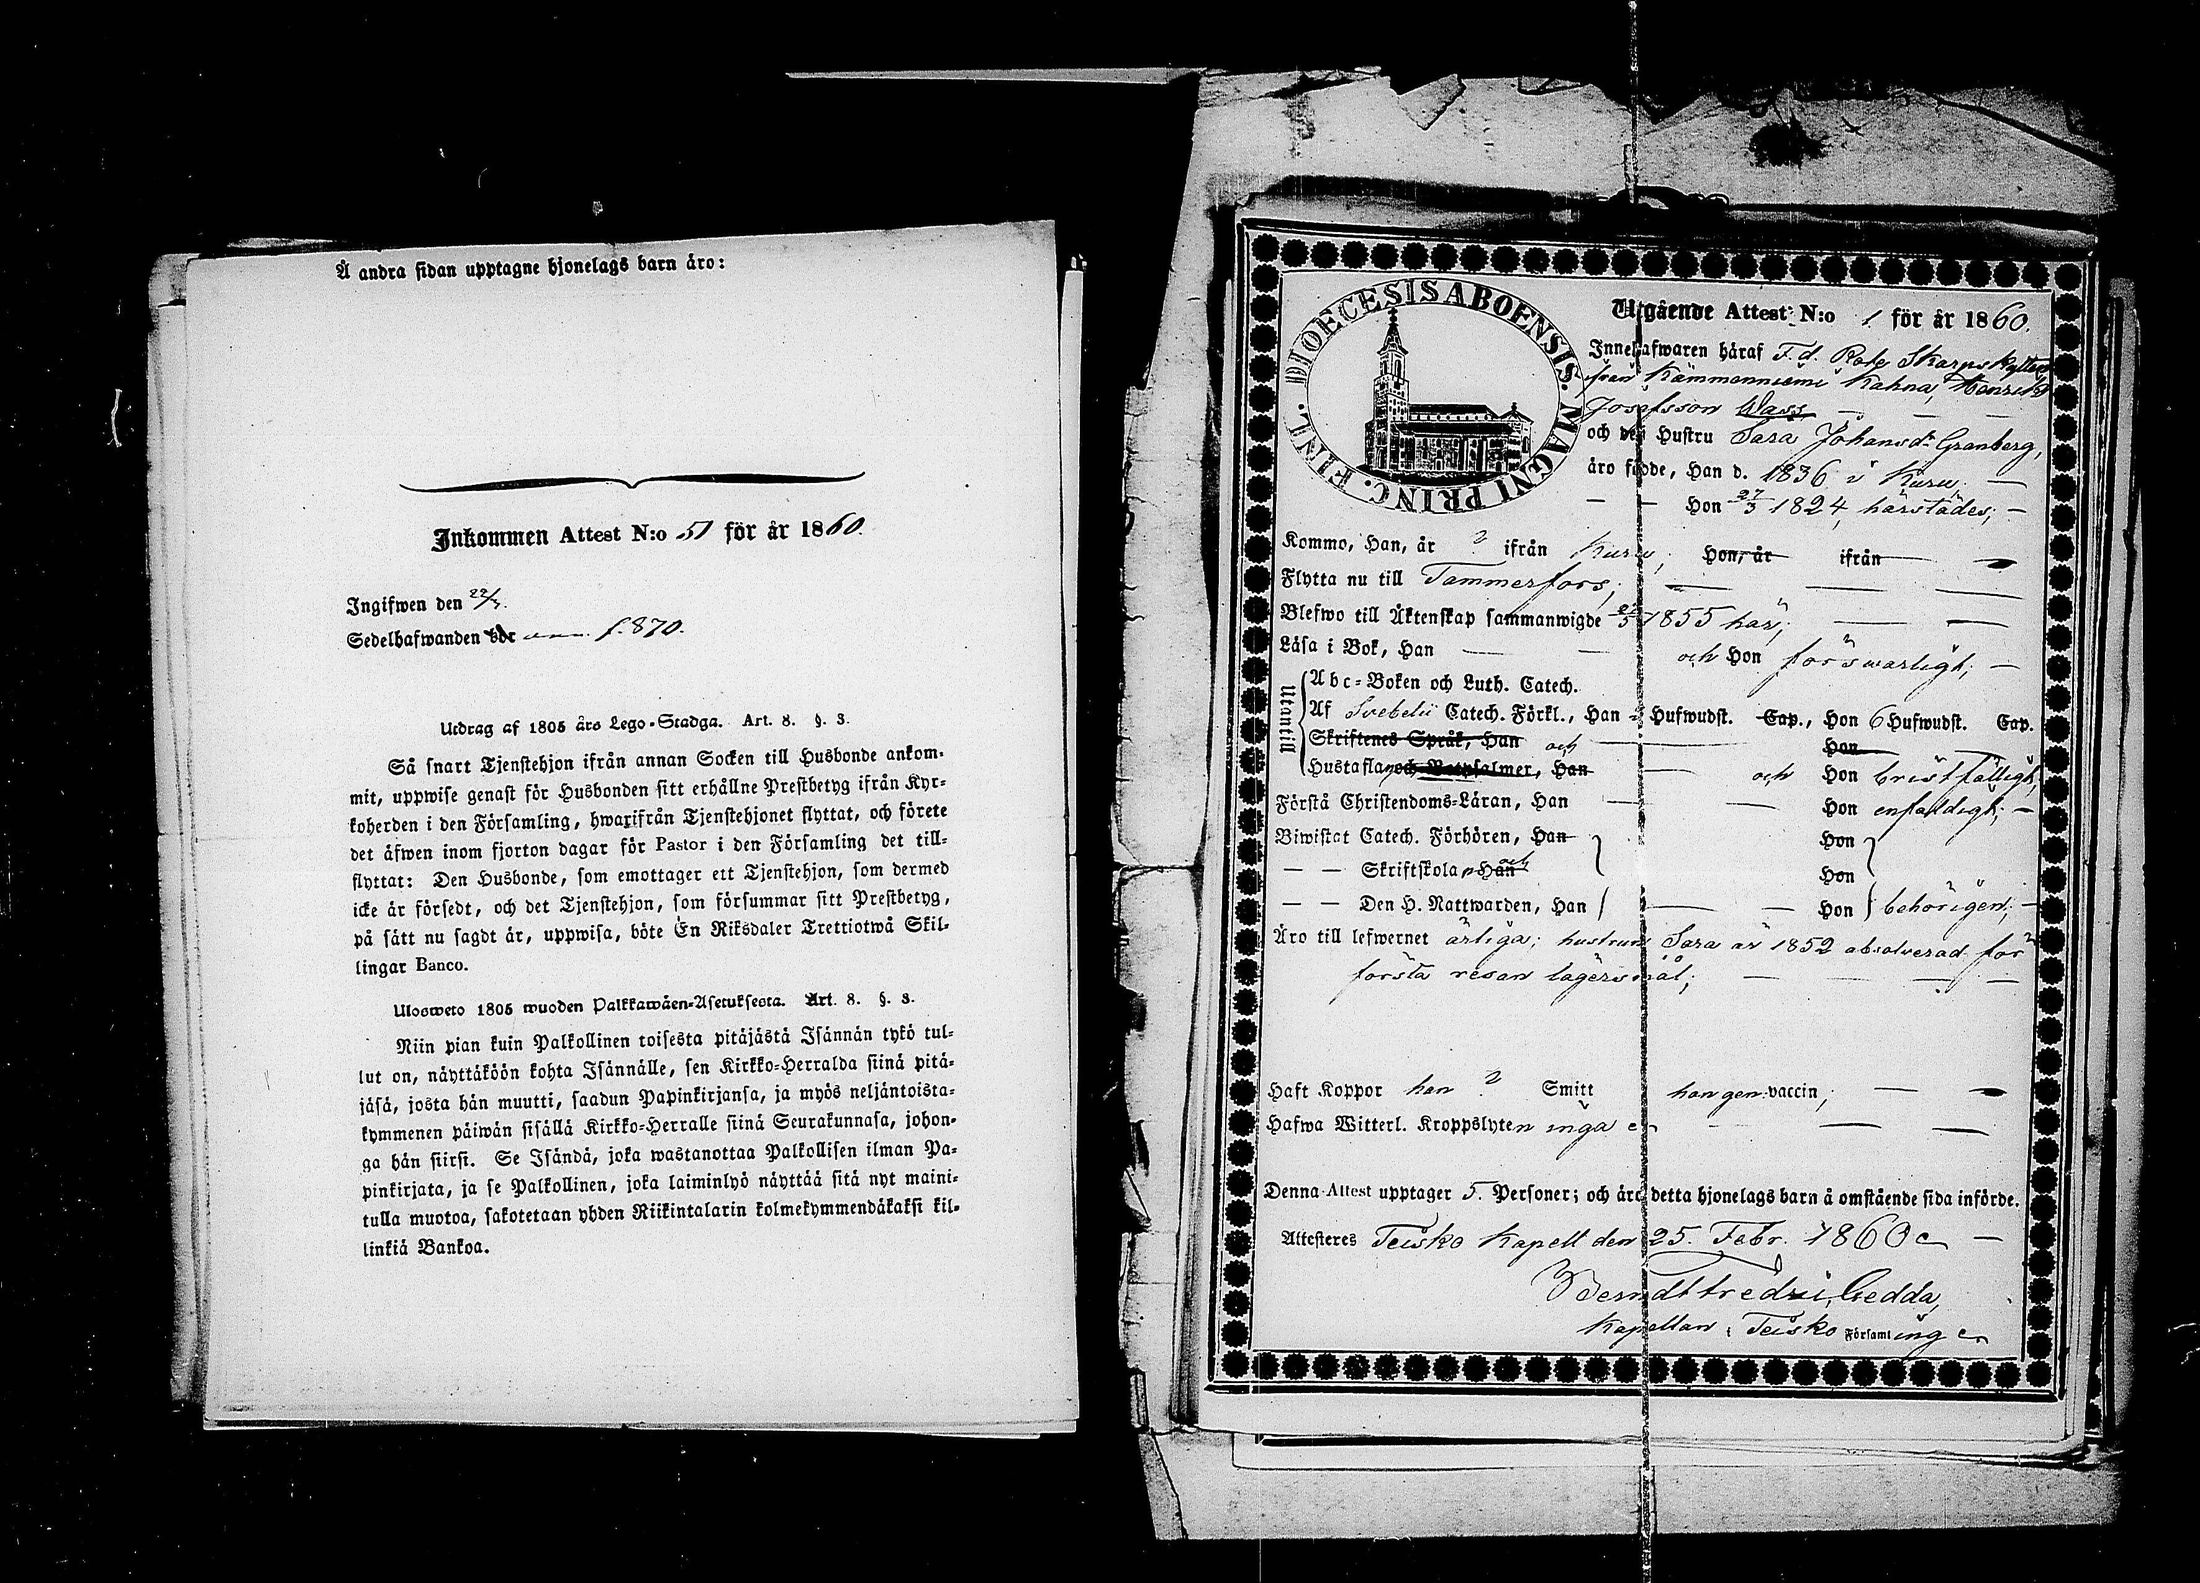 Å andra sidan upptagne hjonelags barn äro:
Inkommen Attest N:o 51 för år 1860.
Ingifwen den 22/3.
Sedelhafwanden bör ann. f. 870.
Utdrag af 1805 års Lego-Stadga. Art. 8. §. 3.
Så snart Tjenstehjon ifrån annan Socken till Husbonde ankom-
mit, uppwise genast för Husbonden sitt erhållne Prestbetyg ifrån Kyr-
koherden i den Församling, hwarifrån Tjenstehjonet flyttat, och förete
det äfwen inom fjorton dagar för Pastor i den Församling det till-
flyttat: Den Husbonde, som emottager ett Tjenstehjon, som dermed
icke är försedt, och det Tjenstehjon, som försummar sitt Prestbetyg,
på sätt nu sagdt är, uppwisa, böte En Riksdaler Trettiotwå Skil-
lingar Banco.
Ulosweto 1805 wuoden Palkkawäen-Asetuksesta. Art. 8. §. 3.
Niin pian kuin Palkollinen toisesta pitäjästä Isännän tykö tul-
lut on, näyttäköön kohta Isännälle, sen Kirkko-Herralda siinä pitä-
jäsä, josta hän muutti, saadun Papinkirjansa, ja myös neljäntoista-
kymmenen päiwän sisällä Kirkko-Herralle siinä Seurakunnasa, johon-
ga hän siirsi. Se Isändä, joka wastanottaa Palkollisen ilman Pa-
pinkirjata, ja se Palkollinen, joka laiminlyö näyttää sitä nyt maini-
tulla muotoa, sakotetaan yhden Riikintalarin kolmekymmendäkaksi kil-
linkiä Bankoa.
DIOECESIS ABOENSIS. MAGNI PRINC. FINL.
Utgående Attest N:o 1 för år 1860.
Innehafwaren häraf F.d. Rote Skarpskytten
från Kämmenniemi Kahna, Henrik
Josefsson Wass, — — —
och des Hustru Sara Johansdr Granberg,
äro födde, Han d. 1836 i Kuru. —
— — Hon 27/3 1824, härstädes; —
Kommo, Han, år ? ifrån Kuru, Hon, år ifrån —
Flytta nu till Tammerfors; — — —
Blefwo till Äktenskap sammanwigde 1855 här; — —
Läsa i Bok, Han — — och Hon förswarligt; —
Utantill
Abc-Boken och Luth. Catech.
Af Svebelii Catech. Förkl., Han Hufwudst. Cap., Hon 6 Hufwudst. Cap.
Skriftenes Språk, Han och — Hon —
Hustafla, och Botpsalmer, Han — och Hon bristfälligt,
Förstå Christendoms-Läran, Han — — Hon enfaldigt; —
Biwistat Catech. Förhören, Han Hon
— — Skriftskola, och Han Hon
— — Den H. Nattwarden, Han — — Hon behörigen; —
Äro till lefwernet ärliga; hustrun Sara är 1852 absolverad för
första resan lägersmål; — — — —
Haft Koppor han ? Smitt hon gen. vaccin; — —
Hafwa Witterl. Kroppslyten inga — — —
Denna Attest upptager 5. Personer; och äro detta hjonelags barn å omstående sida införde.
Attesteres Teisko Kapell den 25. Febr. 1860 —
Berndt Fredri. Gedda,
Kapellan i Teisko Församling